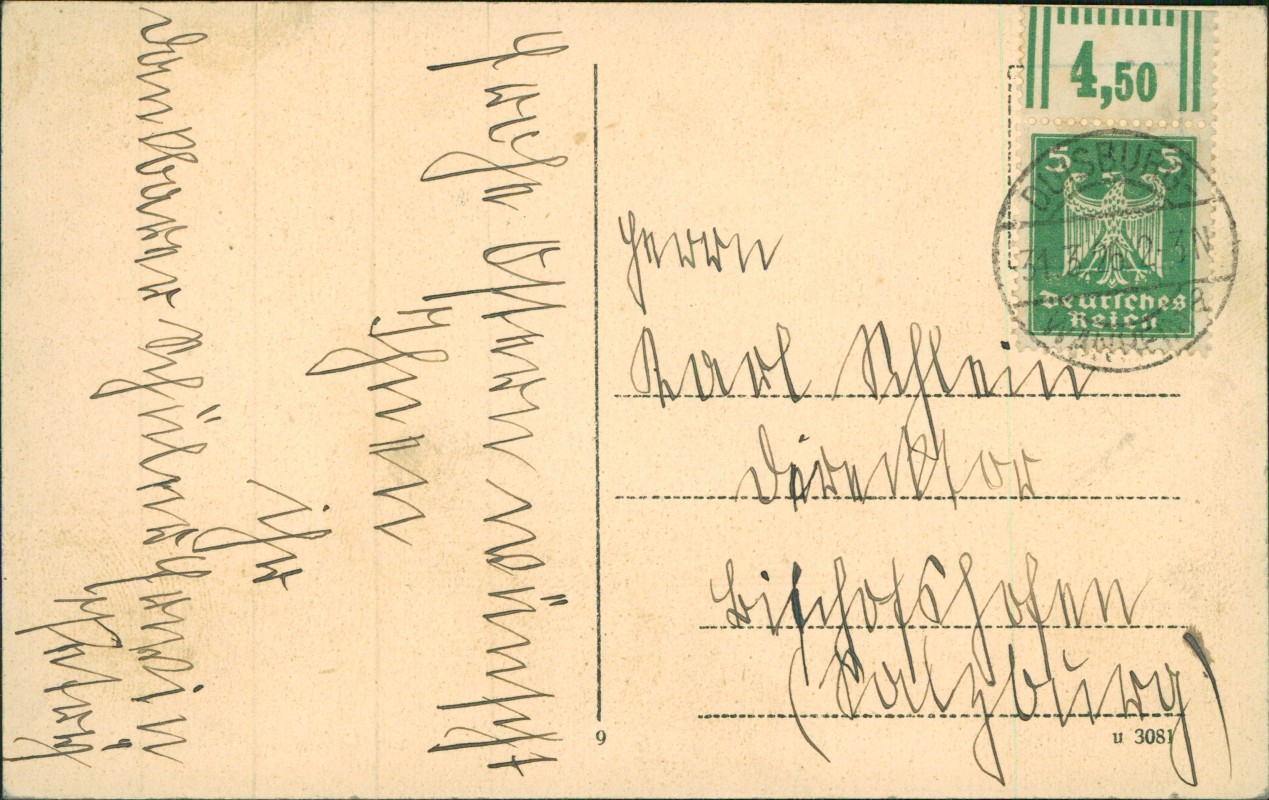 Frohe Ostern wünscht
Ihnen
Ihr
dankbarer Schüler
4,50
5 5
Deutsches
Reich
DUISBURG
31.3.26. 2-3N
Herrn
Karl Schlein
Direktor
Bischofshofen
(Salzburg)
9
u 3081